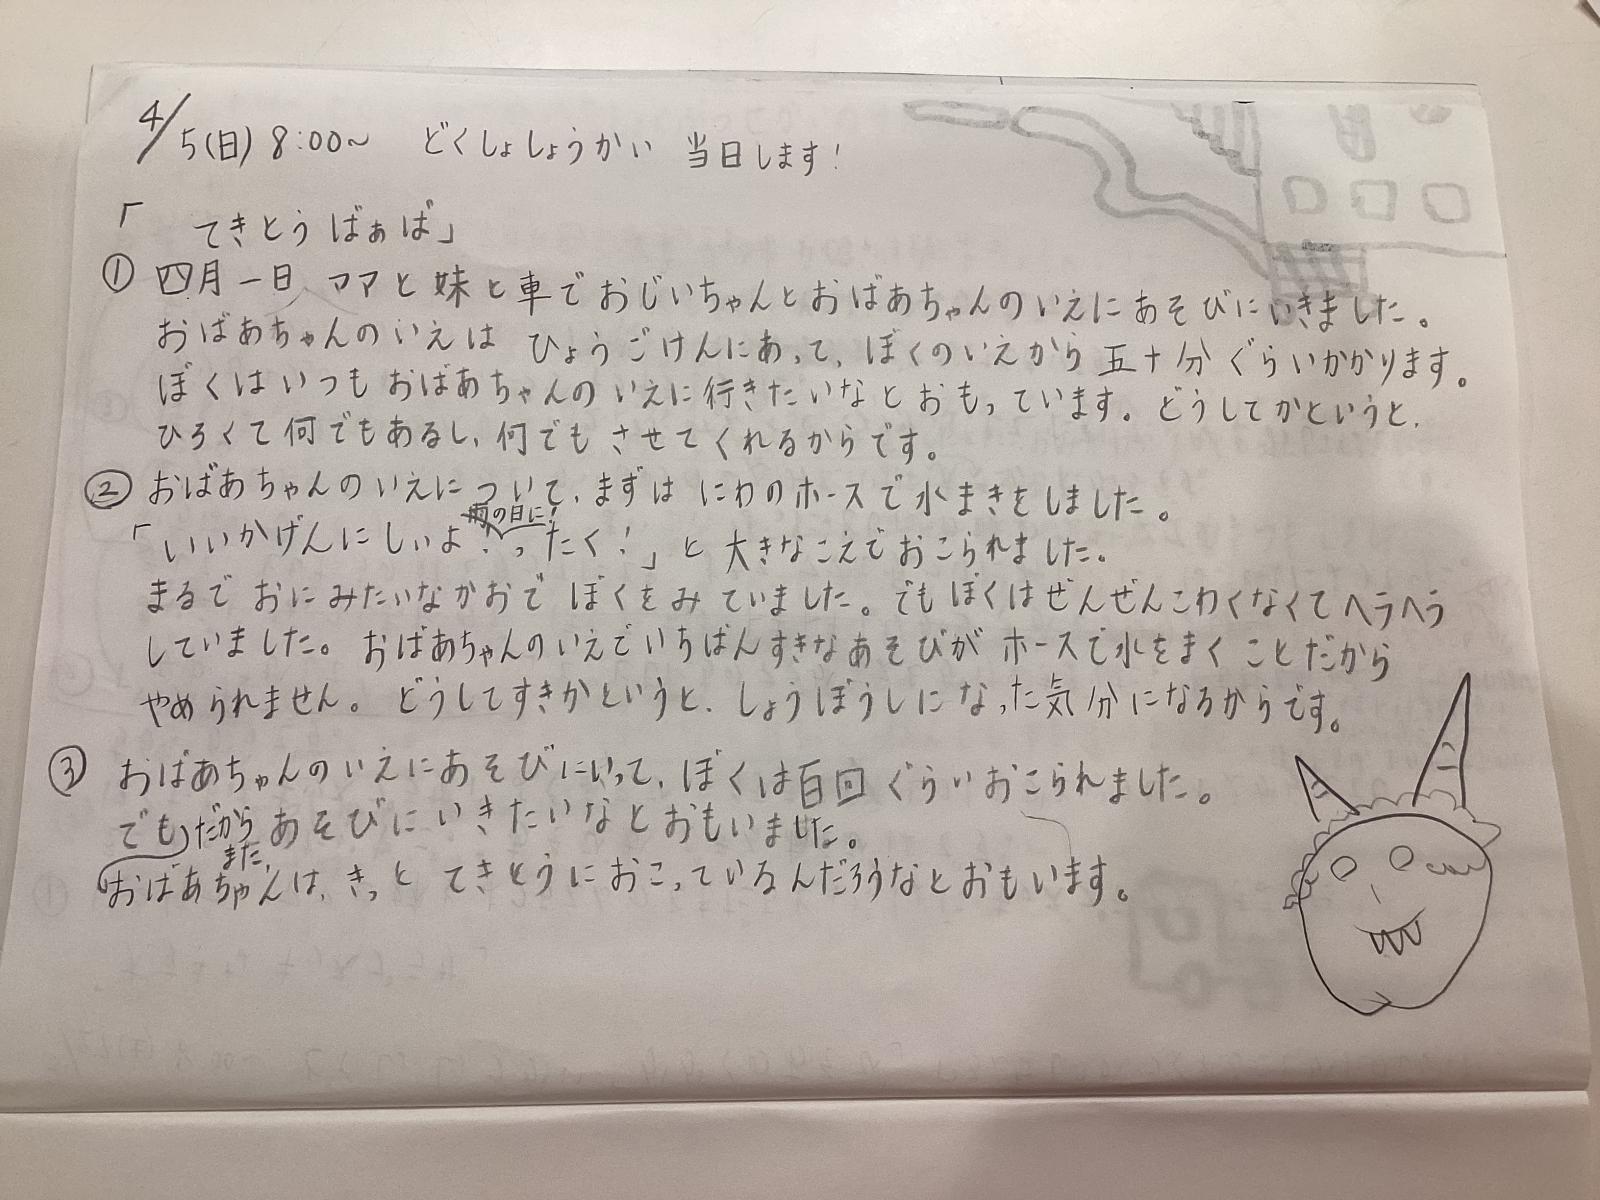 4/5(日) 8:00〜 どくしょしょうかい 当日します!
「 てきとうばぁば」
① 四月一日 ママと妹と車でおじいちゃんとおばあちゃんのいえにあそびにいきました。
おばあちゃんのいえは ひょうごけんにあって、ぼくのいえから五十分ぐらいかかります。
ぼくはいつもおばあちゃんのいえに行きたいなとおもっています。どうしてかというと、
ひろくて何でもあるし、何でもさせてくれるからです。
② おばあちゃんのいえについて、まずは にわのホースで水まきをしました。
雨の日に!
「いいかげんにしぃよ!ったく!」と大きなこえでおこられました。
まるで おにみたいなかおで ぼくをみていました。でもぼくはぜんぜんこわくなくてヘラヘラ
していました。おばあちゃんのいえでいちばんすきなあそびがホースで水をまくことだから
やめられません。どうしてすきかというと、しょうぼうしになった気分になるからです。
③ おばあちゃんのいえにあそびにいって、ぼくは百回ぐらいおこられました。
でも だから あそびにいきたいなとおもいました。
また、
おばあちゃんは、きっと てきとうにおこっているんだろうなとおもいます。